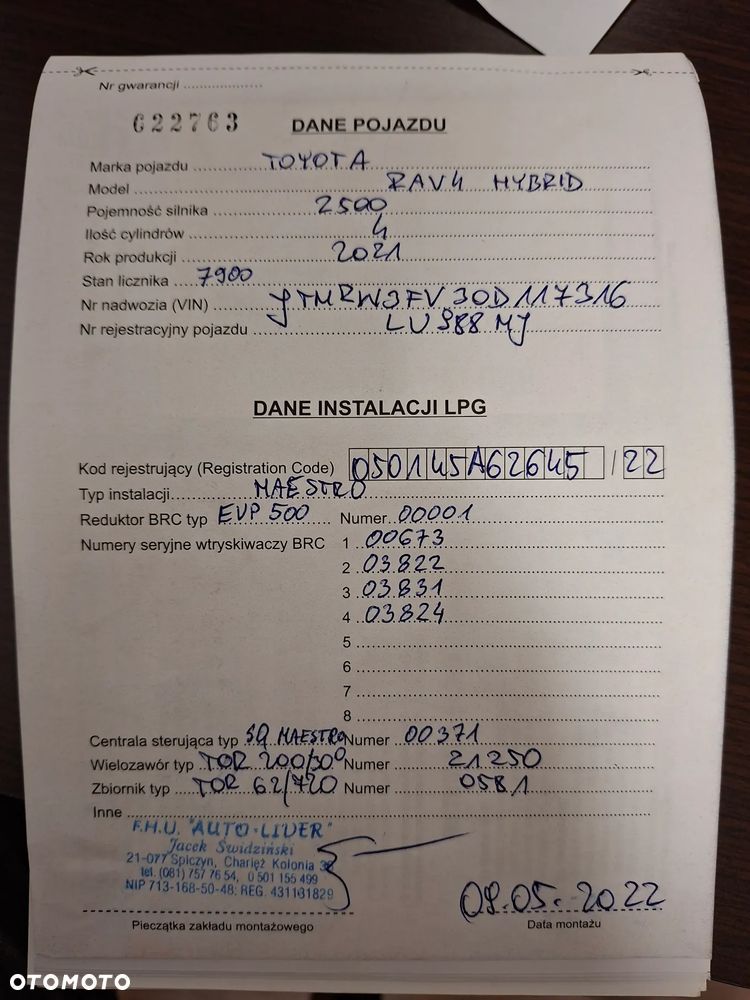 Nr gwarancji ....................
622763
DANE POJAZDU
Marka pojazdu TOYOTA
Model RAV4 HYBRID
Pojemność silnika 2500
Ilość cylindrów 4
Rok produkcji 2021
Stan licznika 7900
Nr nadwozia (VIN) JTMRW3FV30D117316
Nr rejestracyjny pojazdu LU 988 MJ
DANE INSTALACJI LPG
Kod rejestrujący (Registration Code) 050145A62645 / 22
Typ instalacji MAESTRO
Reduktor BRC typ EVP 500 Numer 00001
Numery seryjne wtryskiwaczy BRC 1 00673
2 03822
3 03831
4 03824
5
6
7
8
Centrala sterująca typ SQ MAESTRO Numer 00371
Wielozawór typ TOR 200/30° Numer 21250
Zbiornik typ TOR 62/720 Numer 0581
Inne
F.H.U. "AUTO-LIDER"
Jacek Świdziński
21-077 Spiczyn, Charlęż Kolonia
tel. (081) 757 76 54, 0 501 155 499
NIP 713-168-50-48; REG. 431181829
09.05.2022
Pieczątka zakładu montażowego
Data montażu
OTOMOTO